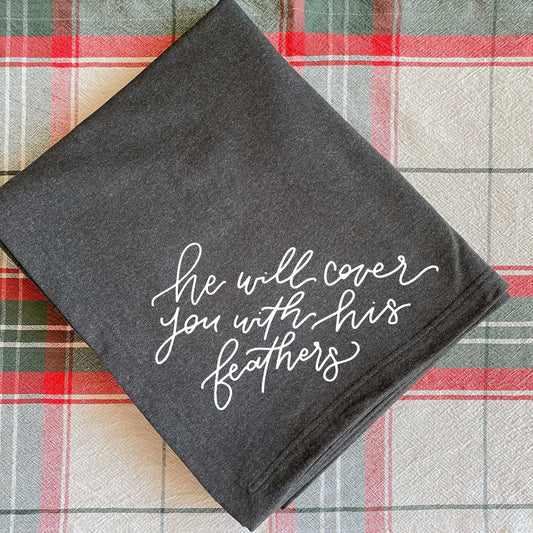 he will cover
you with his
feathers